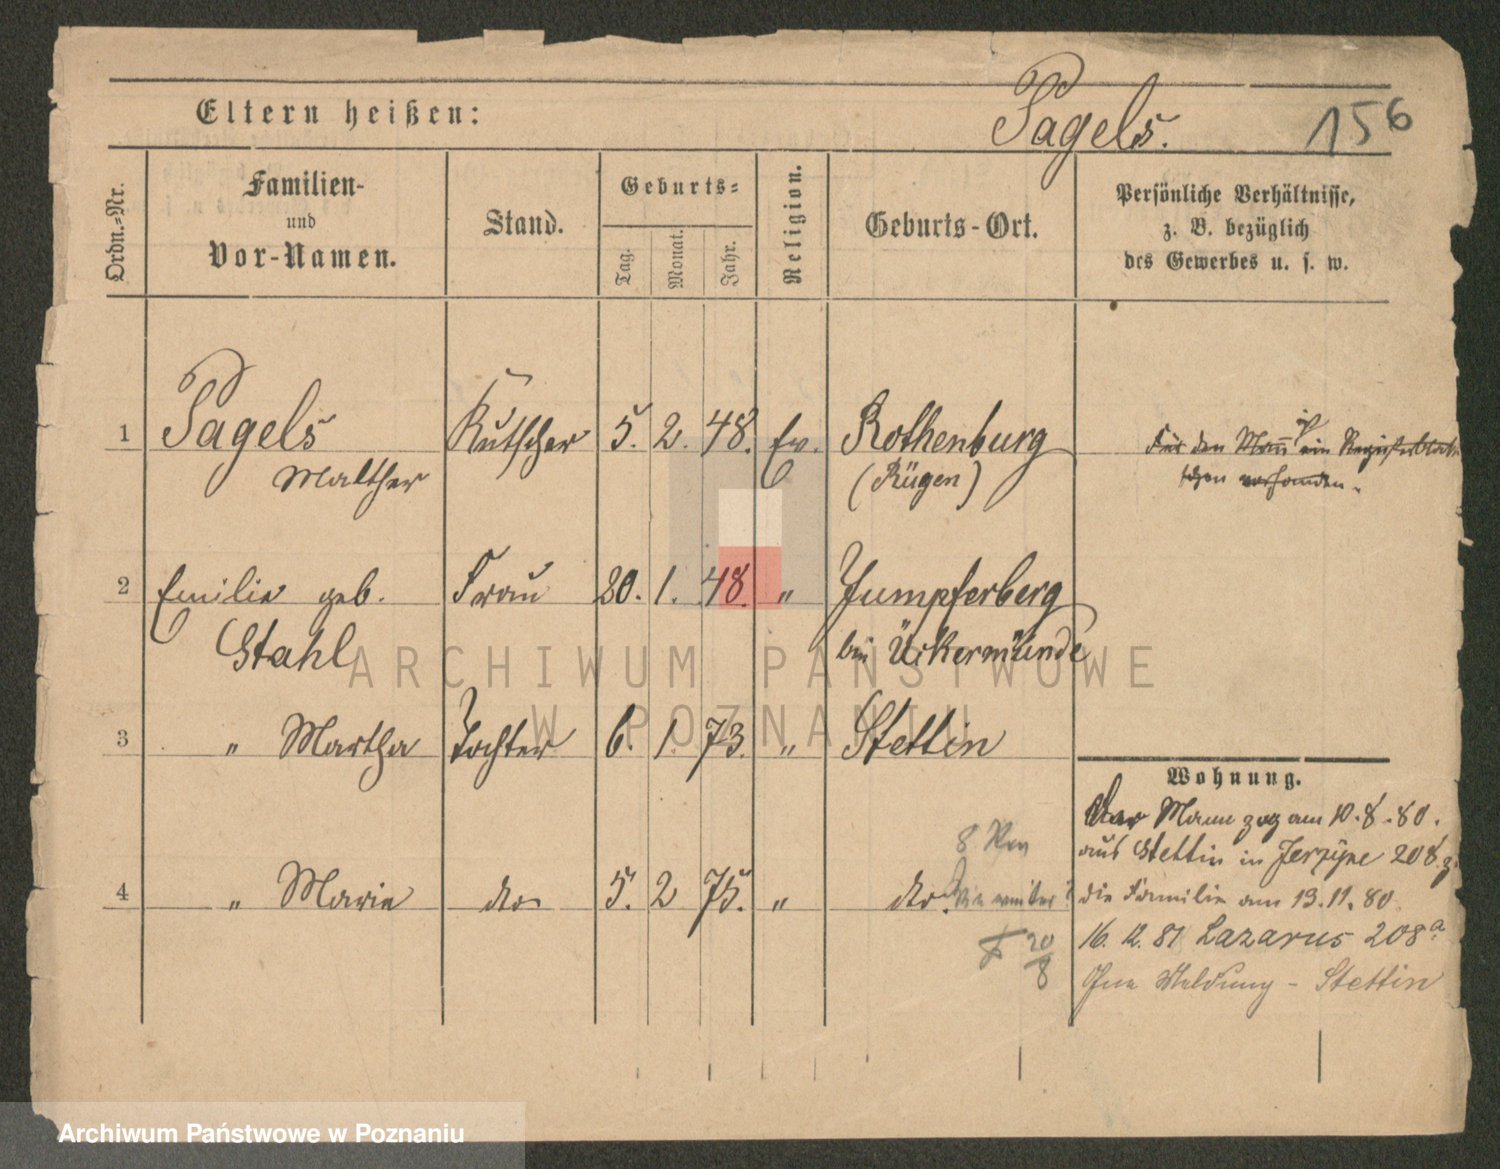 Eltern heißen:
Pagels.
156
Ordn.-Nr.
Familien-
und
Vor-Namen.
Stand.
Geburts-
Tag.
Monat.
Jahr.
Religion.
Geburts-Ort.
Persönliche Verhältnisse,
z. B. bezüglich
des Gewerbes u. s. w.
1 Pagels Kutscher 5. 2. 48. Ev. Rothenburg
Malther (Rügen)
Für den Mann ist ein Registerblatt
schon vorhanden.
2 Emilie geb. Frau 20. 1. 48. " Jumpferberg
Stahl bei Ückermünde
3 " Martha Tochter 6. 1. 73. " Stettin
4 " Marie dto 5. 2 75. " dto.
8
20
8
Wohnung.
Der Mann zog am 10.8.80.
aus Stettin in Jerzyce 208 z.
die Familie am 13.11.80
16. 12. 81 Lazarus 208a.
Ohne Meldung - Stettin
ARCHIWUM PAŃSTWOWE
W POZNANIU
Archiwum Państwowe w Poznaniu